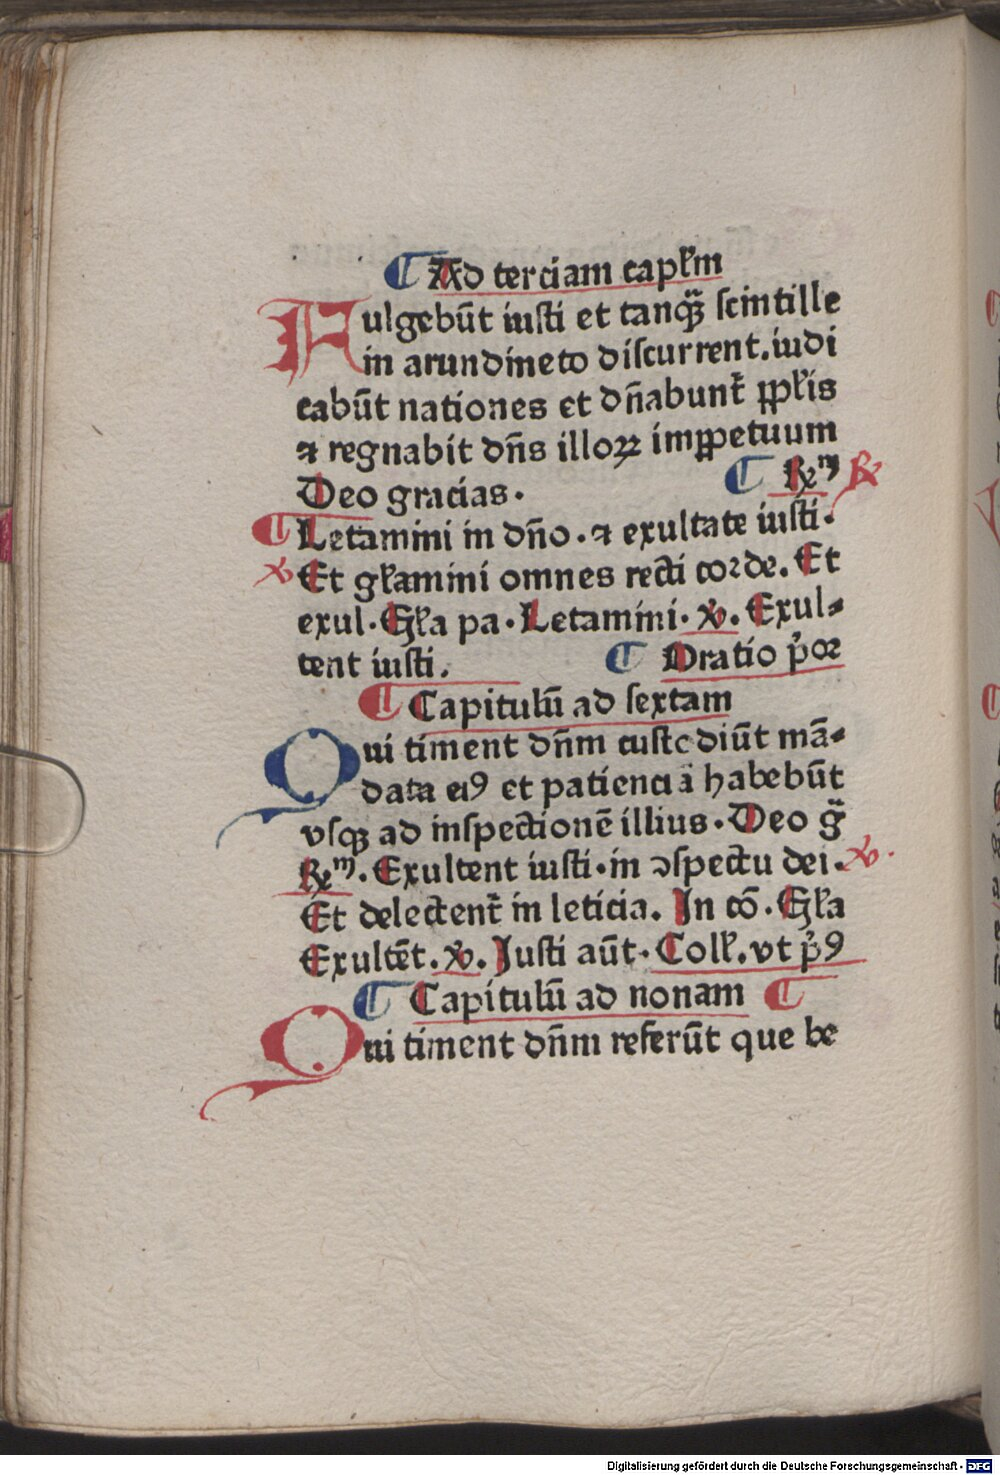 ¶ Ad terciam caplm̄
Fulgebūt iusti et tanqꝫ̄ scintille
in arundineto discurrent. iudi
cabūt nationes et dn̄abunt᷑ ꝓplīs
⁊ regnabit dn̄s illoꝝ imꝑpetuum
Deo gracias. ¶ ℞ꝫᵐ ℞
¶ Letamini in dn̄o. ⁊ exultate iusti.
℣ Et gl̄amini omnes recti corde. Et
exul. Gl̄a pa. Letamini. ℣. Exul-
tent iusti. ¶ Oratio p̓oꝛ
¶ Capitulū ad sextam
Qui timent dn̄m custodiūt mā-
data eiꝰ et patienciā habebūt
vsqꝫ ad inspectionē illius. Deo g̃
℞ᵐ. Exultent iusti. in ꝯspectu dei. ℣.
Et delectent᷑ in leticia. In cō. Gl̄a
Exultēt. ℣. Justi aūt. Coll̄. vt p̓ꝰ
¶ Capitulū ad nonam ¶
Qui timent dn̄m referūt que be
Digitalisierung gefördert durch die Deutsche Forschungsgemeinschaft - DFG